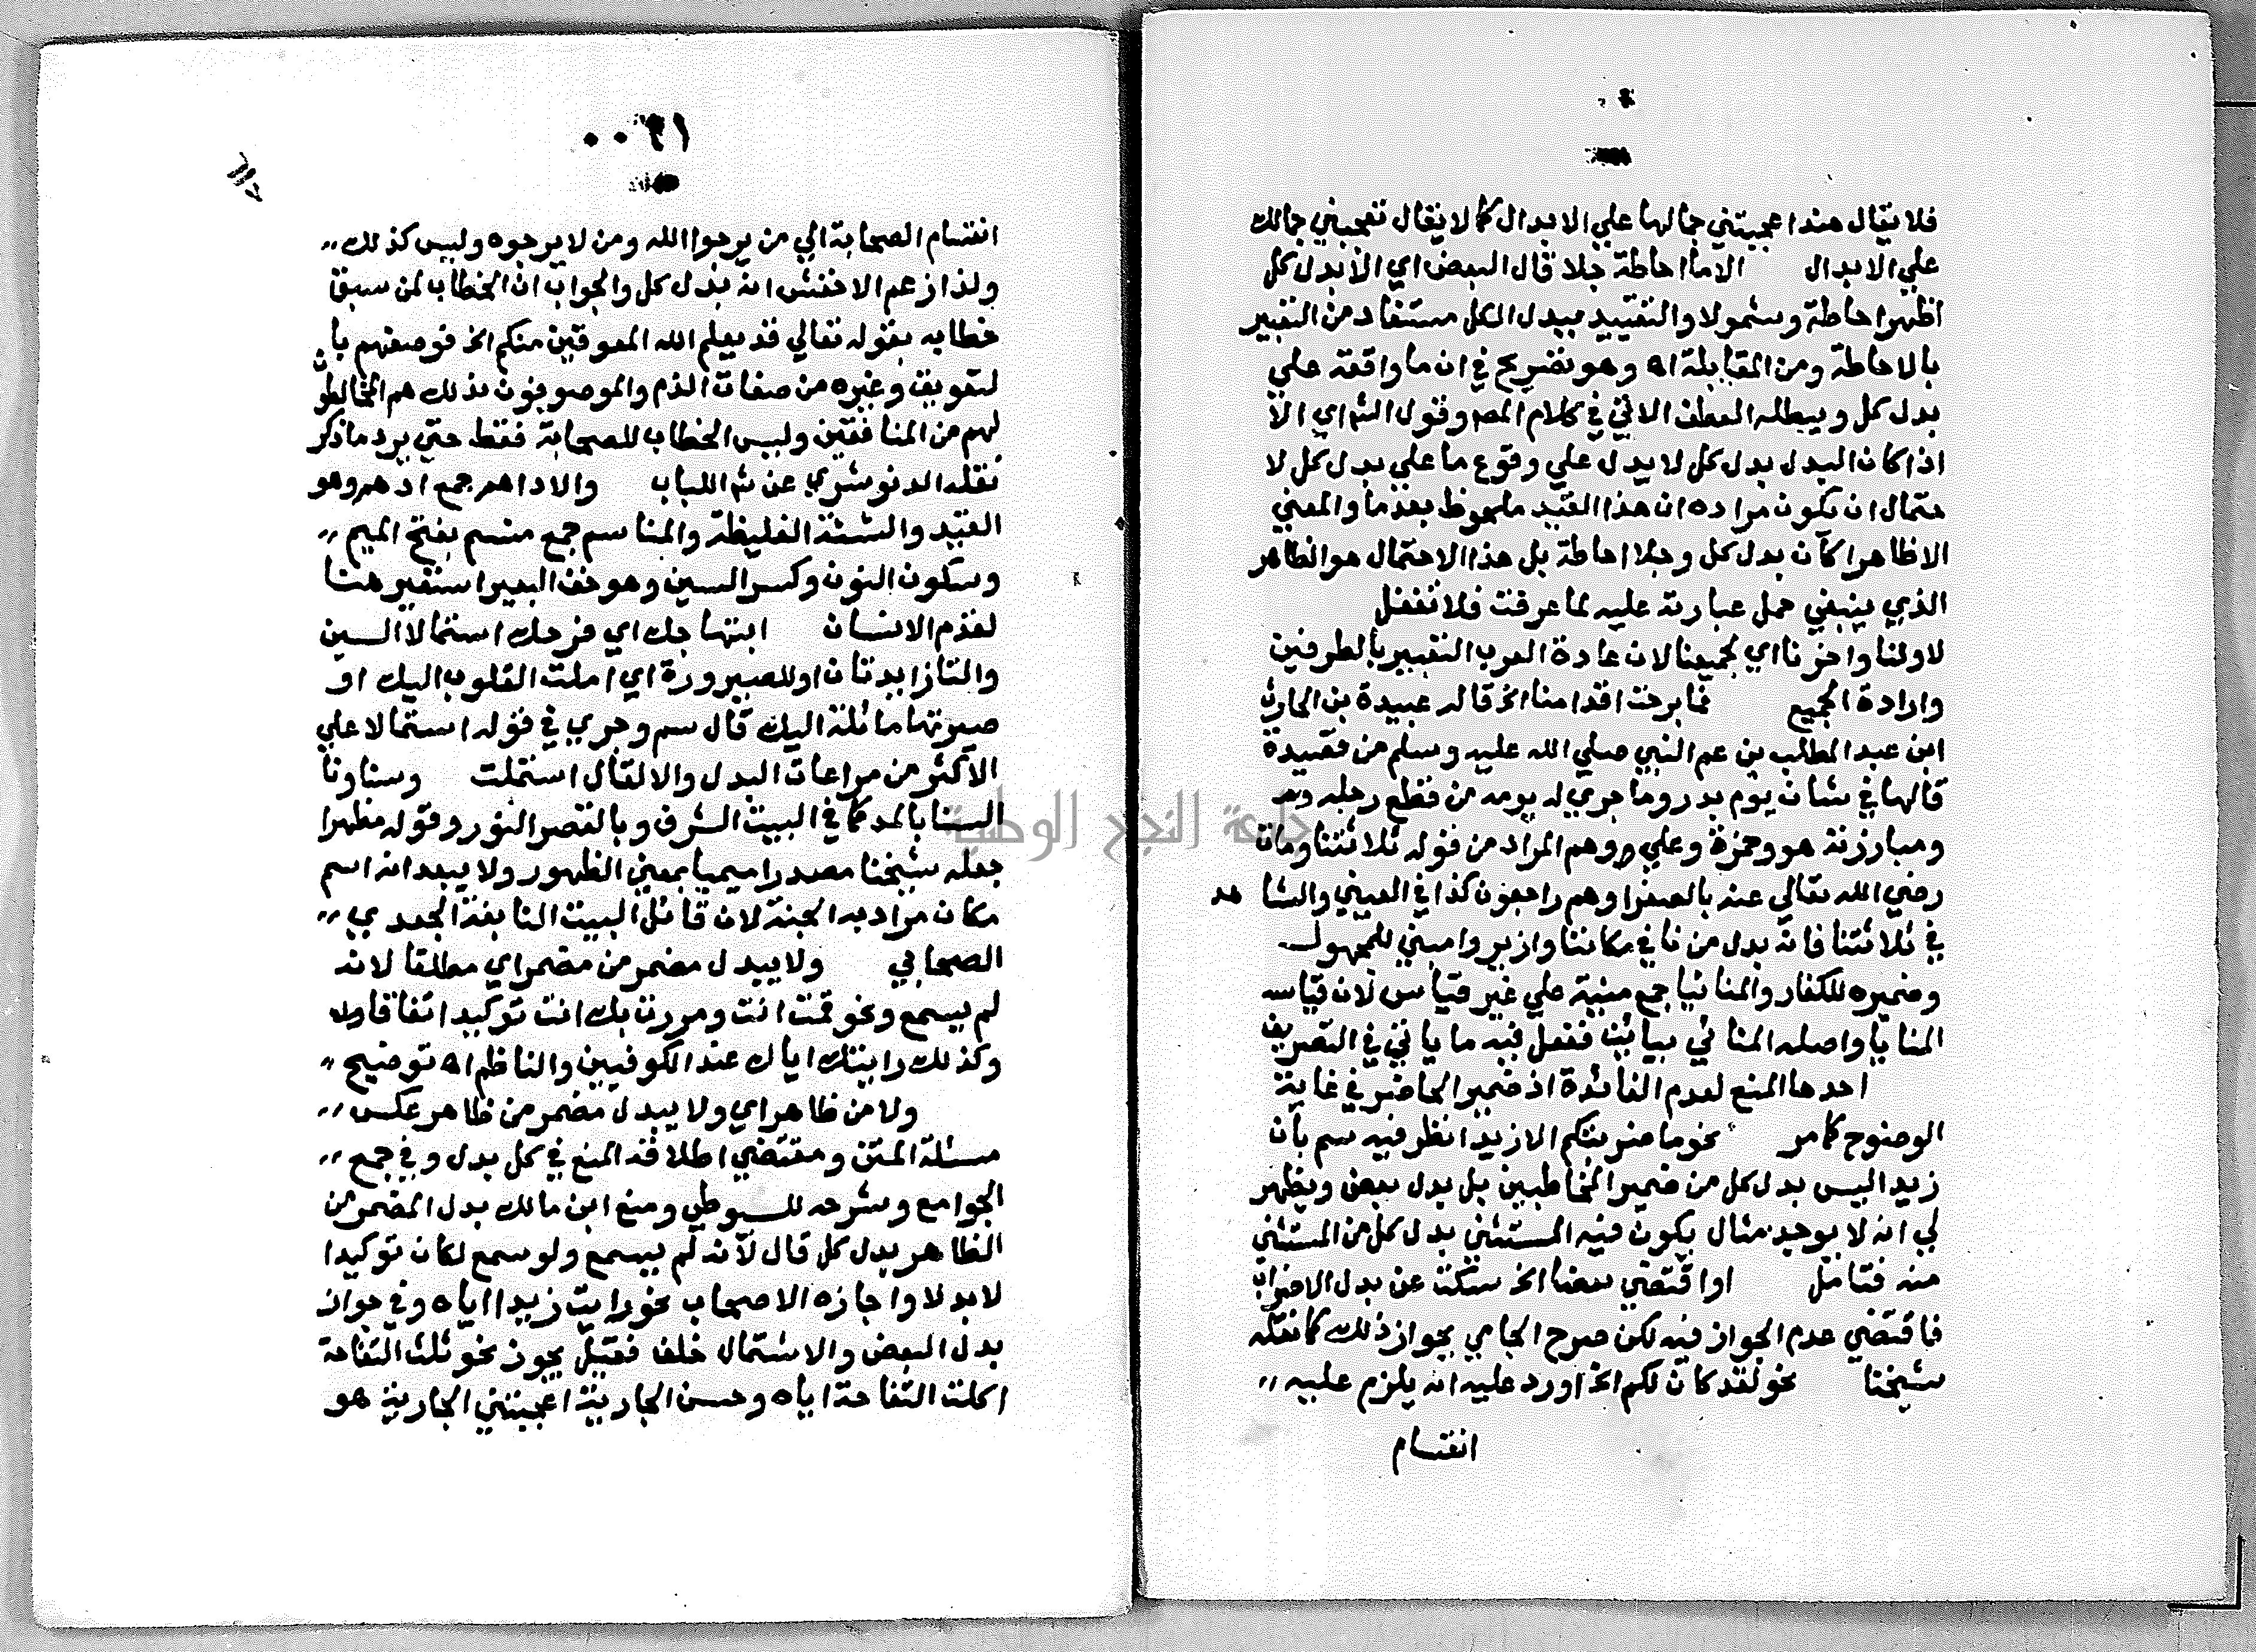 فلا يقال هندا عجبتني جمالها علي الابدال كما لا يقال تعجبني جمالك
علي الابدال الاما احاطة جلا قال البعض اي الا بدل كل
اظهرا حاطة وشمولا والتقييد ببدل الكل مستفاد من التعبير
بالاحاطة ومن المقابلة اه وهو تصريح في ان ما واقعة علي
بدل كل ويبطله العطف الاتي في كلام المصـ وقول الشـ اي الا
اذا كان البدل بدل كل لا يدل علي وقوع ما علي بدل كل لا
حتمال ان يكون مراده ان هذا القيد ملحوظ بعد ما والمعني
الا ظاهرا كان بدل كل وجلا احاطة بل هذا الاحتمال هو الظاهر
الذي ينبغي حمل عبارته عليه لما عرفت فلا تغفل
لاولنا واخرنا اي لجميعنا لان عادة العرب التعبير بالطرفين
وارادة الجميع فما برحت اقدامنا الخ قاله عبيدة بن الحارث
ابن عبد المطلب بن عم النبي صلي الله عليه وسلم من قصيدة
قالها في شان يوم بدر وما جري له يومه من قطع رجله
ومبارزته هو وحمزة وعلي وهم المراد من قوله ثلاثتنا ومات
رضي الله تعالي عنه بالصفرا وهم راجعون كذا في العيني والشا هد
في ثلاثتنا فانه بدل من نا في مكاننا وازيروا مبني للمجهول
وضميره للكفار والمنائيا جمع منية علي غير قياس لان قياسه
المنايا واصله المنائي بيائين ففعل فيه ما ياتي في التصريف
احدها المنع لعدم الفائدة اذ ضمير الحاضر في غاية
الوضوح كما مر نحو ما ضربتكم الا زيدا نظر فيه سم بان
زيدا ليس بدل كل من ضمير المخاطبين بل بدل بعض ويظهر
لي انه لا يوجد مثال يكون فيه المستثني بدل كل من المستثني
منه فتامل اوا قتضي بعضا الخ سكت عن بدل الاضراب
فاقتضي عدم الجواز فيه لكن صرح الجامي بجواز ذلك كما نقله
شيخنا نحو لقد كان لكم الخ اورد عليه انه يلزم عليه
انقسام
٠٠٢١
انقسام الصحابة الي من يرجوا الله ومن لا يرجوه وليس كذلك
ولذا زعم الاخفش انه بدل كل والجواب ان الخطاب لمن سبق
خطابه بقوله تعالي قد يعلم الله المعوقين منكم الخ فوصفهم با
لتعويق وغيره من صفات الذم والموصوفون بذلك هم المخالطون
لهم من المنافقين وليس الخطاب للصحابة فقط حتي يرد ما ذكر
نقله الدنوشري عن شـ اللباب والاداهم جمع ادهم وهو
القيد والشثنة الغليظة والمناسم جمع منسم بفتح الميم
وسكون النون وكسر السين وهو خف البعير استعير هنا
لقدم الانسان ابتهاجك اي فرحك استمالا السين
والتا زايدتان او للصيرورة اي املت القلوب اليك او
صيرتها مائلة اليك قال سم وجري في قوله استمالا علي
الاكثر من مراعات البدل والا لقال استملت وسناونا
السنا بالمد كما في البيت الشرف وبالقصر النور وقوله مظهرا
جعله شيخنا مصدرا ميميا بمعني الظهور ولا يبعد انه اسم
مكان مرادبه الجنة لان قائل البيت النابغة الجعدي
الصحابي ولا يبدل مضمر من مضمر اي مطلقا لانه
لم يسمع ونحو قمت انت ومررت بك انت توكيد اتفاقا
وكذلك رايتك اياك عند الكوفيين والناظم اه توضيح
ولا من ظاهر اي ولا يبدل مضمر من ظاهر عكس
مسئلة المتن ومقتضي اطلاقه المنع في كل بدل وفي جمع
الجوامع وشرحه للسيوطي ومنع ابن مالك بدل المضمر من
الظاهر بدل كل قال لانه لم يسمع ولو سمع لكان توكيدا
لا بدلا واجازه الاصحاب نحو رايت زيدا اياه وفي جواز
بدل البعض والاشتمال خلف فقيل يجوز نحو ثلث التفاحة
اكلت التفاحة اياه وحسن الجارية اعجبتني الجارية هو
جامعة النجاح الوطنية